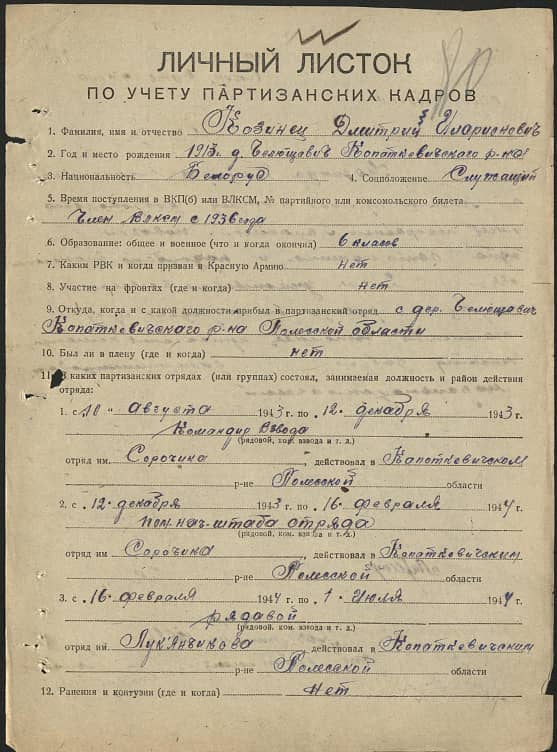 ЛИЧНЫЙ ЛИСТОК
ПО УЧЕТУ ПАРТИЗАНСКИХ КАДРОВ
1. Фамилия, имя и отчество Козинец Дмитрий Иларионович
2. Год и место рождения 1913г. д. Белюшавич Копаткевичского р-на
3. Национальность Белорус 4. Соцположение Служащий
5. Время поступления в ВКП(б) или ВЛКСМ, № партийного или комсомольского билета
Член ВЛКСМ с 1936 года
6. Образование: общее и военное (что и когда окончил) 6 классов
7. Каким РВК и когда призван в Красную Армию нет
8. Участие на фронтах (где и когда) нет
9. Откуда, когда и с какой должности прибыл в партизанский отряд с дер.
Копаткевичского р-на Полесской области
10. Был ли в плену (где и когда) нет
11. В каких партизанских отрядах (или группах) состоял, занимаемая должность и район действия
отряда:
1. с "10" Августа 1943 г. по "12" декабря 1943 г.
Командир взвода
(рядовой, ком. взвода и т. д.)
отряд им. Сорочика, действовал в Копаткевичском
р-не Полесской области
2. с "12" декабря 1943 г. по "16" февраля 1944 г.
Пом. нач. штаба отряда
(рядовой, ком. взвода и т. д.)
отряд им. Сорочика, действовал в Копаткевичским
р-не Полесской области
3. с "16" февраля 1944 г. по "1" июля 1944 г.
рядавой
(рядовой, ком. взвода и т. д.)
отряд им. Лук'янчикова, действовал в Копаткевичским
р-не Полесской области
12. Ранения и контузии (где и когда) Нет